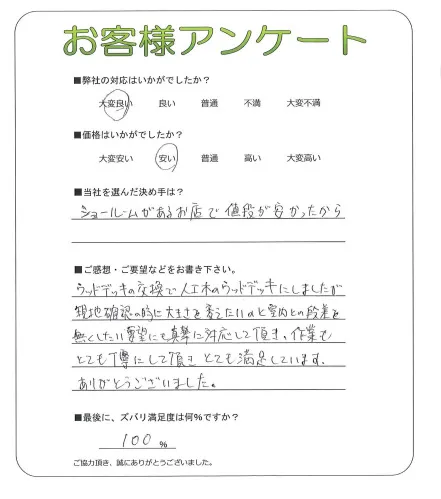 お客様アンケート
■弊社の対応はいかがでしたか?
大変良い 良い 普通 不満 大変不満
■価格はいかがでしたか?
大変安い 安い 普通 高い 大変高い
■当社を選んだ決め手は?
ショールームがあるお店で値段が安かったから
■ご感想・ご要望などをお書き下さい。
ウッドデッキの交換で人工木のウッドデッキにしましたが
現地確認の時に大きさを変えたいのと室内との段差を
無くしたい要望にも真摯に対応して頂き、作業も
とても丁寧にして頂きとても満足しています.
ありがとうございました。
■最後に、ズバリ満足度は何%ですか?
100 %
ご協力頂き、誠にありがとうございました。